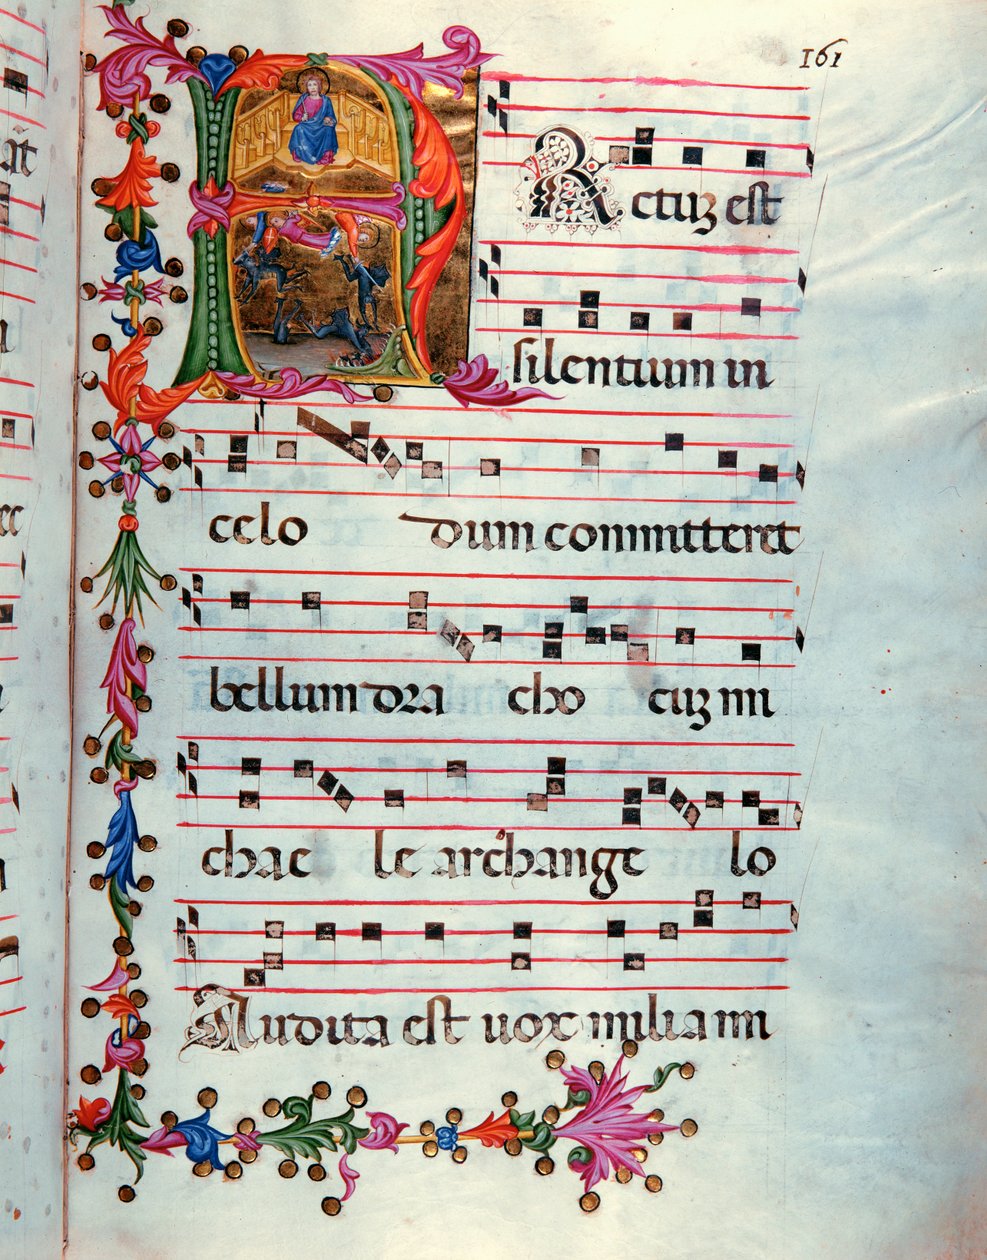 161
FActuz est
silentium in
celo dum committeret
bellum dracho cuz mi
chaele archangelo
Audita est uox milia mi